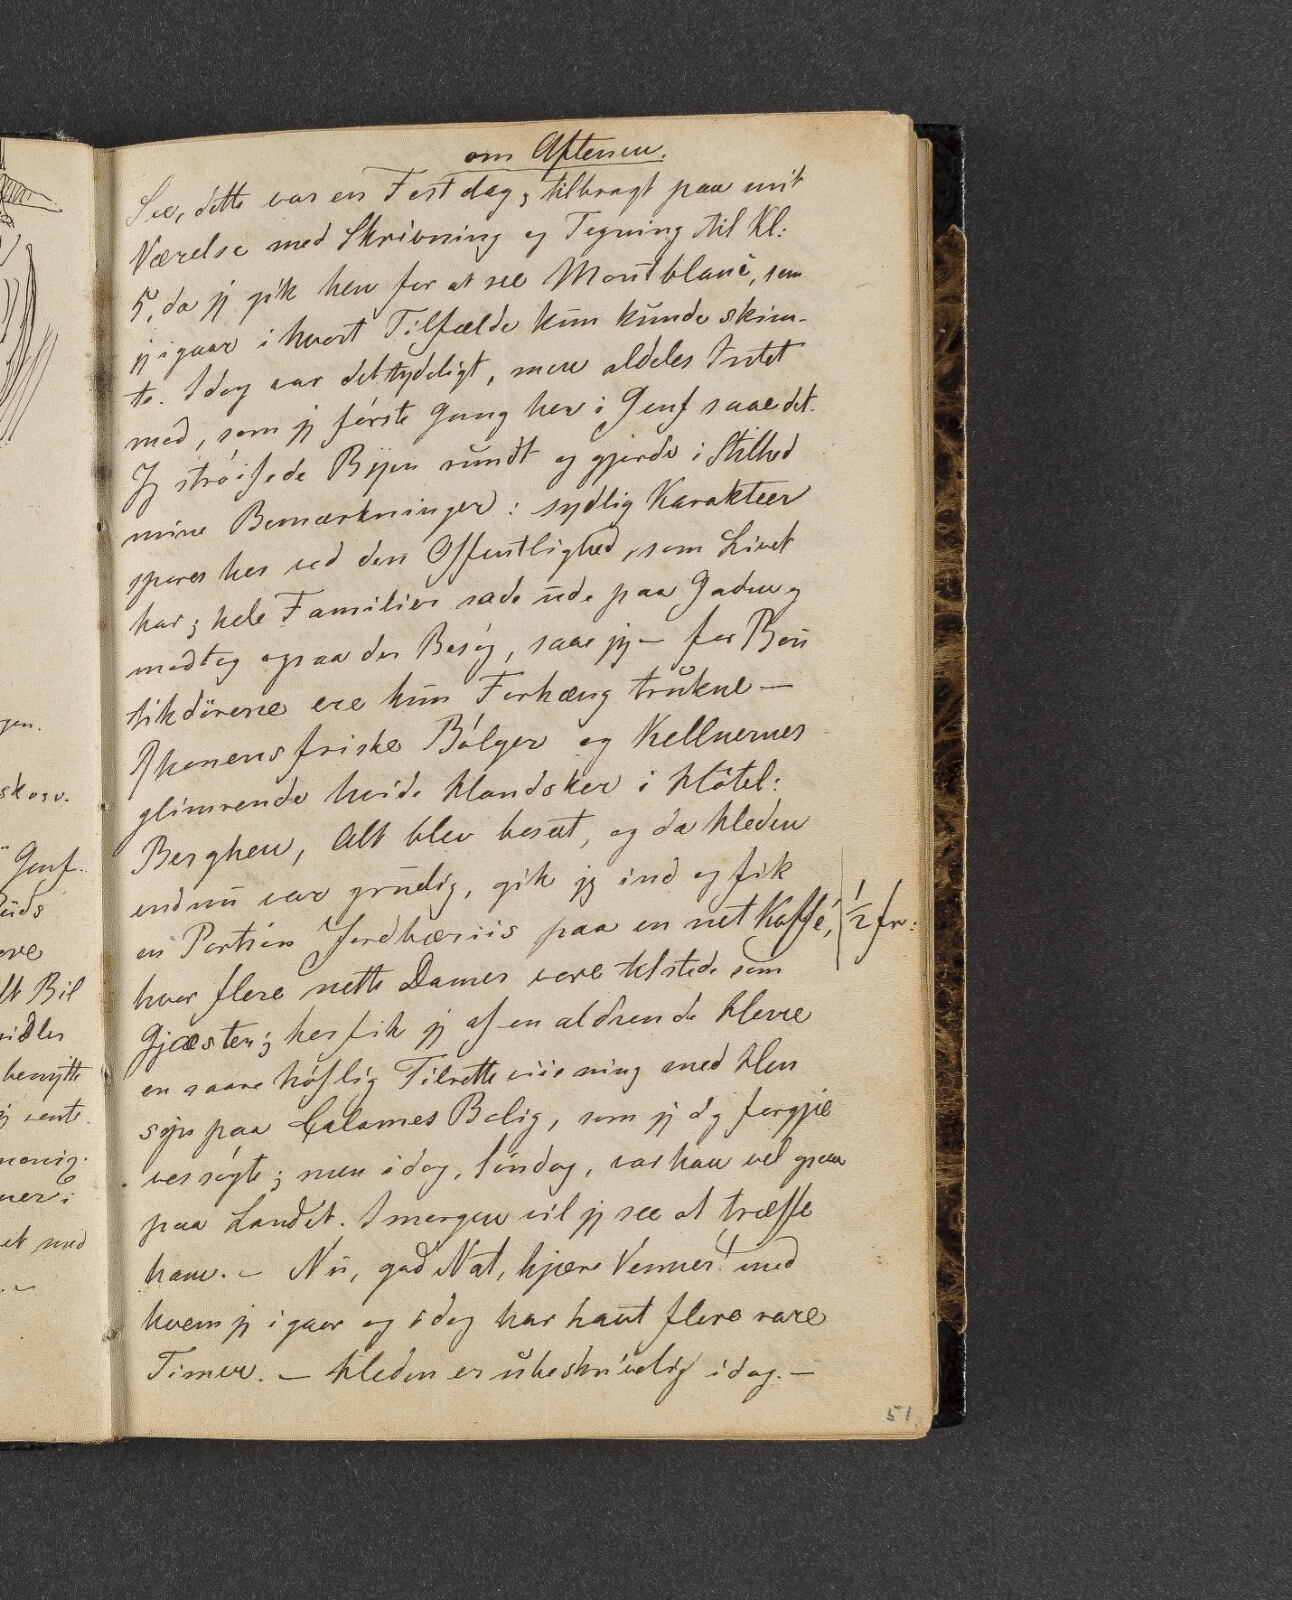 om Aftenen.
See, dette var en Festdag, tilbragt paa mit
Værelse med Skrivning og Tegning til Kl:
5, da jeg gik hen for at see Montblanc, som
jeg igaar i hvert Tilfælde kun kunde skim-
te. Idag var det tydeligt, men aldeles Intet
mod, som jeg første Gang her i Genf saae det.
Jeg strøifede Byen rundt og gjorde i Stilhed
mine Bemærkninger: sydlig Karakteer
spores her ved den Offentlighed, som Livet
har; hele Familier sade ude paa Gaden og
modtog ogsaa der Besøg, saae jeg — for Bou
tikdørene ere kun Forhæng trukne —
Rhonens friske Bølger og Kellnernes
glimrende hvide Handsker i Hôtel:
Berghen, Alt blev beseet, og da Heden
endnu var grulig, gik jeg ind og fik
en Portion Jordbæriis paa en net Kaffé, ½ fr:
hvor flere nette Damer vare tilstede som
Gjæster; her fik jeg af en aldrende Herre
en saare høflig Tilretteviisning med Hen
syn paa Calames Bolig, som jeg dg forgjæ
ves søgte; men idag, Søndag, var han vel ogsaa
paa Landet. Imorgen vil jeg see at træffe
ham. — Nu, god Nat, kjære Venner! med
hvem jeg igaar og idag har havt flere rare
Timer. — Heden er ubeskrivelig idag. —
51.
gen.
skosv.
Genf.
uds
ove
lt Bil
idler
benytte
jeg vente.
et med